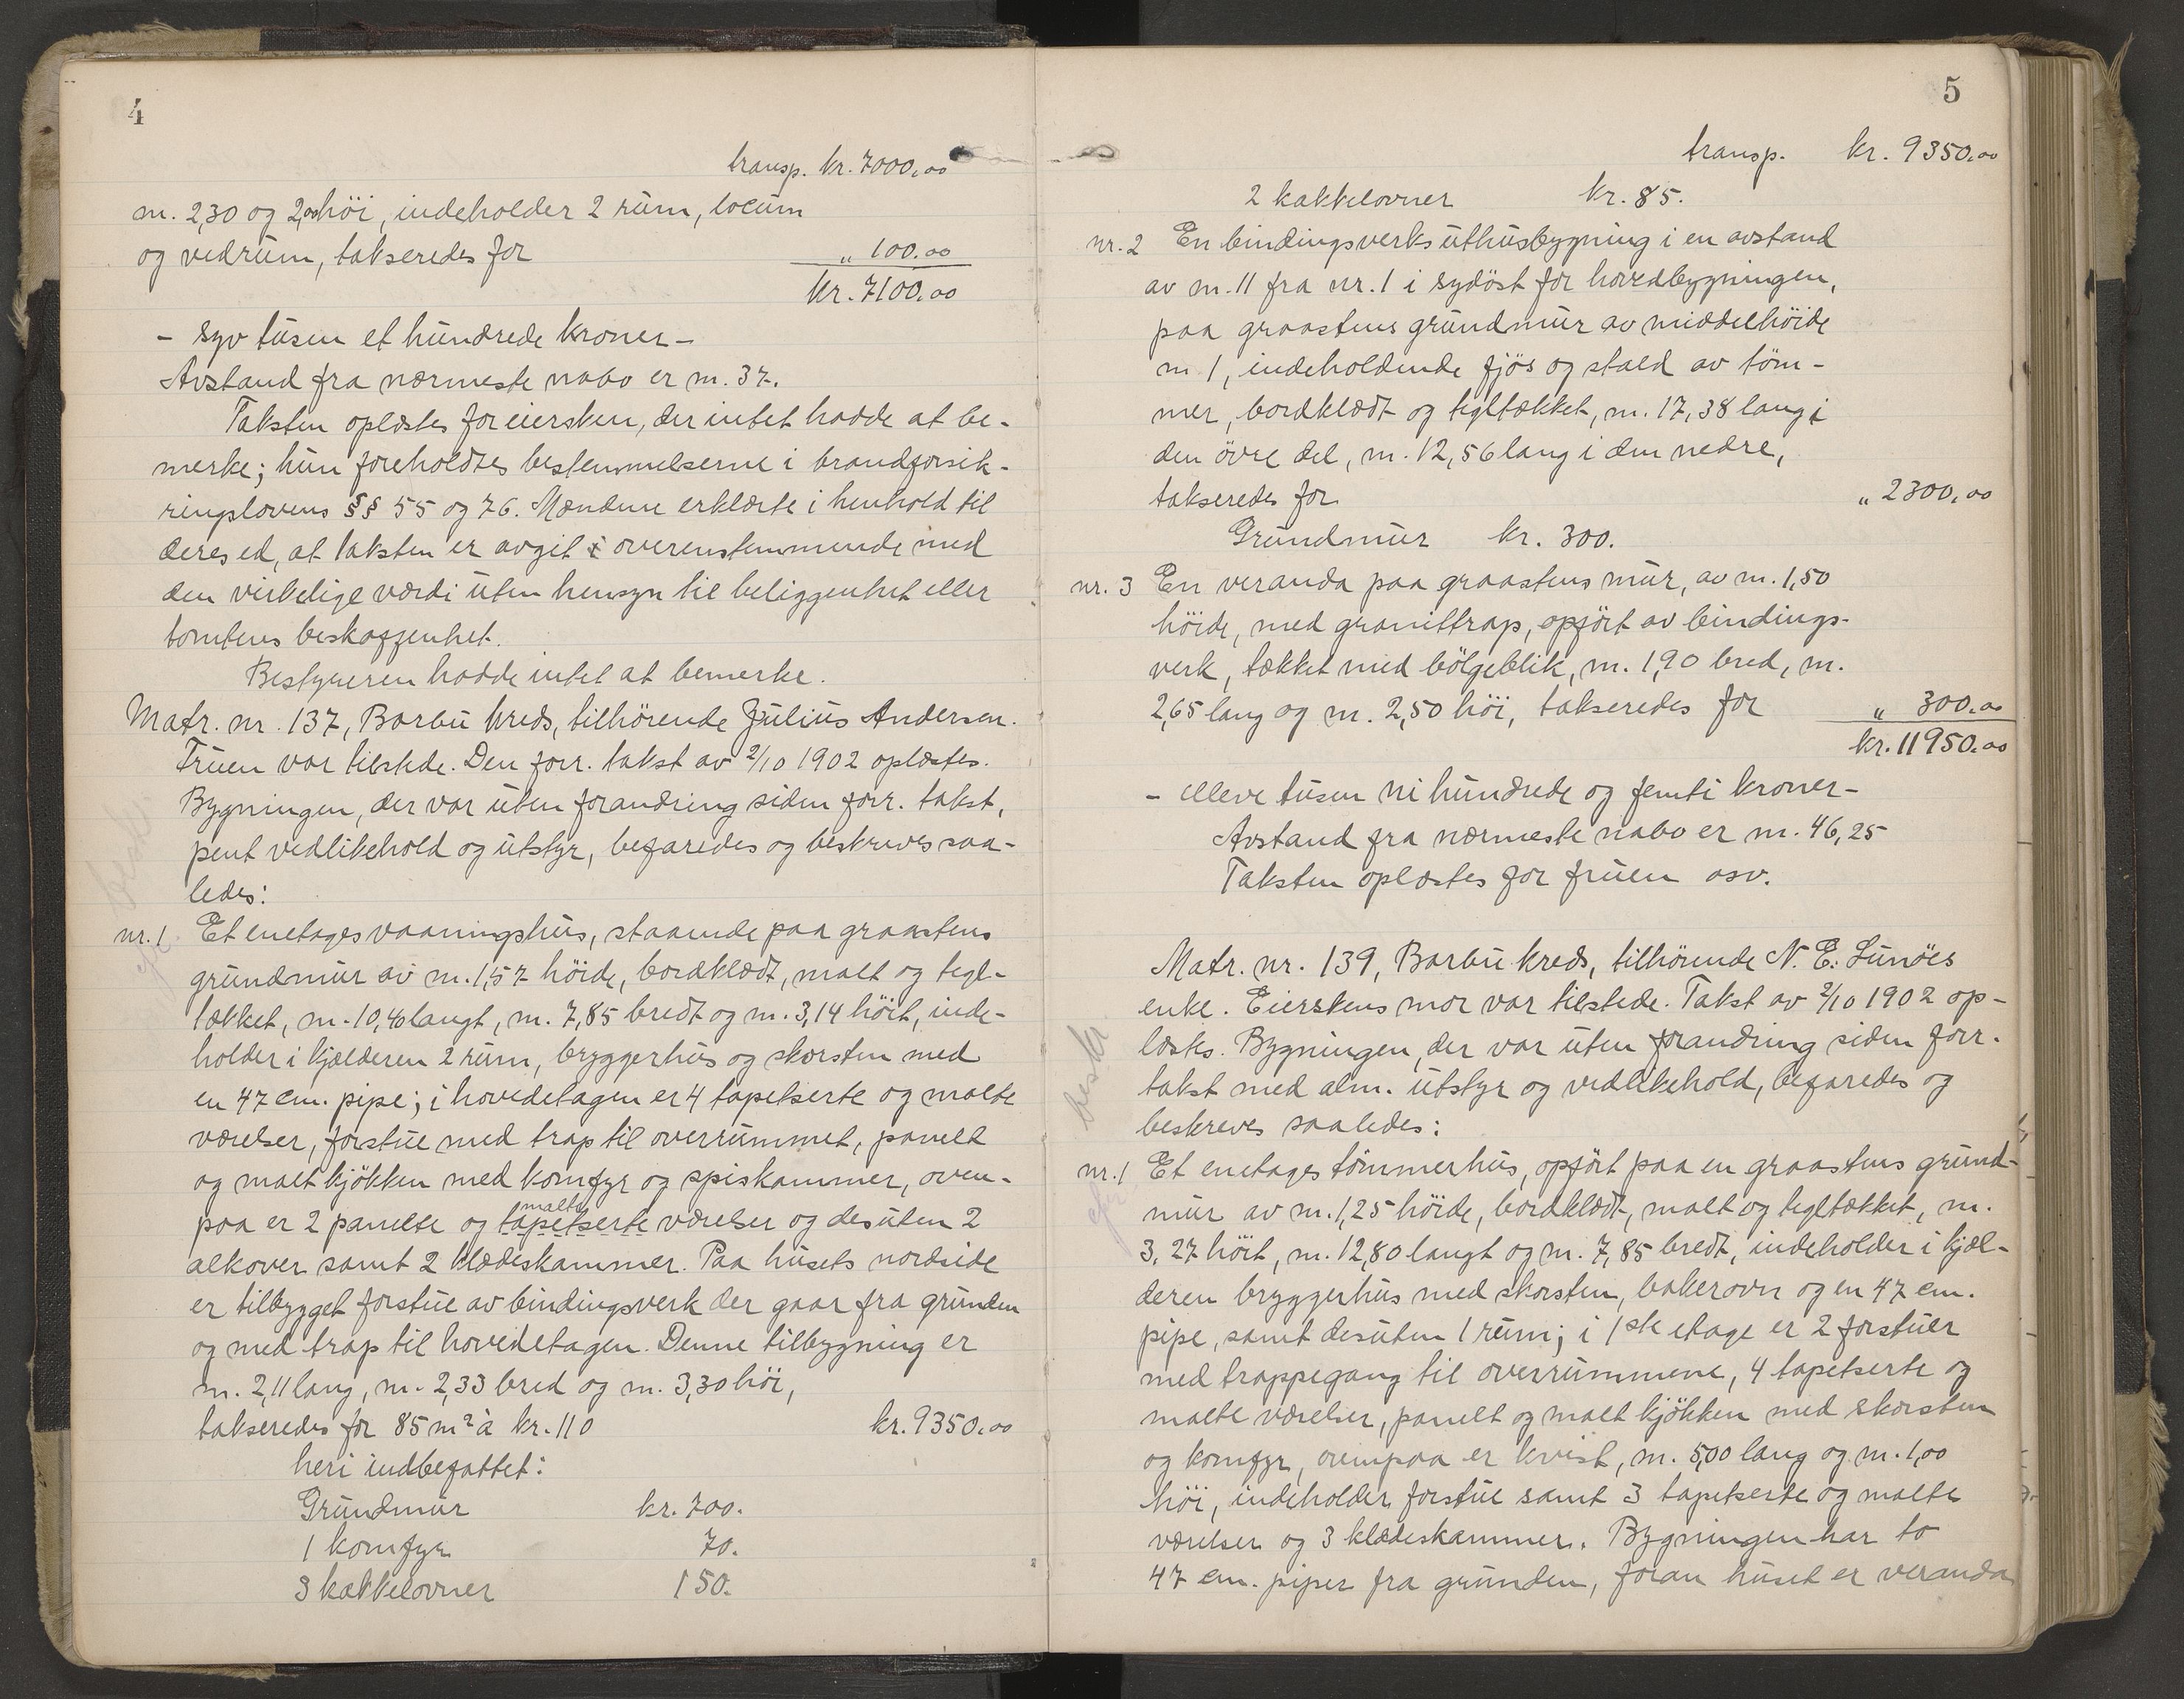 4
transp. kr. 7000,00
m. 2,30 og 2,00 höi, indeholder 2 rum, locum
og vedrum, takseredes for „ 100.00
kr. 7100,00
- syv tusen et hundrede kroner -
Avstand fra nærmeste nabo er m. 37.
Taksten oplæstes for eiersken, der intet hadde at be-
merke; hun foreholdtes bestemmelserne i brandforsik-
ringslovens §§ 55 og 76. Mændene erklærte i henhold til
deres ed, at taksten er avgit overenstemmende med
den virkelige værdi uten hensyn til beliggenhet eller
tomtens beskaffenhet.
Bestyreren hadde intet at bemerke.
Matr. nr. 137, Barbu kreds, tilhörende Julius Andersen.
Fruen var tilstede. Den forr. takst av 2/10 1902 oplæstes.
Bygningen, der var uten forandring siden forr. takst,
pent vedlikehold og utstyr, befaredes og beskreves saa-
ledes:
nr. 1 Et enetages vaaningshus, staaende paa graastens
grundmur av m. 1,57 höide, bordklædt, malt og tegl-
tækket, m. 10,40 langt, m. 7,85 bredt og m. 3,14 höit, inde-
holder i kjælderen 2 rum, bryggerhus og skorsten med
en 47 cm. pipe; i hovedetagen er 4 tapetserte og malte
værelser, forstue med trap til overrummet, panelt
og malt kjökken med komfyr og spiskammer, oven-
malte
paa er 2 panelte og tapetserte værelser og desuten 2
alkover samt 2 klædeskammer. Paa husets nordside
er tilbygget forstue av bindingsverk der gaar fra grunden
og med trap til hovedetagen. Denne tilbygning er
m. 2,11 lang, m. 2,33 bred og m. 3,30 höi,
takseredes for 85 m² à kr. 110 kr. 9350,00
heri indbefattet:
Grundmur kr. 700.
1 komfyr 70.
3 kakkelovner 150.
5
transp. kr. 9350,00
2 kakkelovner kr. 85.
nr. 2 En bindingsverks uthusbygning i en avstand
av m. 11 fra nr. 1 i sydöst for hovedbygningen,
paa graastens grundmur av middelhöide
m 1, indeholdende fjös og stald av töm-
mer, bordklædt og tegltækket, m. 17,38 lang i
den övre del, m. 12,56 lang i den nedre,
takseredes for „ 2300,00
Grundmur kr. 300.
nr. 3 En veranda paa graastens mur, av m. 1,50
höide, med granittrap, opfört av bindings-
verk, tækket med bölgeblik, m. 1,90 bred, m.
2,65 lang og m. 2,50 höi, takseredes for „ 300,00
kr. 11950,00
- elleve tusen ni hundrede og femti kroner -
Avstand fra nærmeste nabo er m. 46,25
Taksten oplæstes for fruen osv.
Matr. nr. 139, Barbu kreds, tilhörende N. E. Lunöes
enke. Eierskens mor var tilstede. Takst av 2/10 1902 op-
læstes. Bygningen, der var uten forandring siden forr.
takst med alm. utstyr og vedlikehold, befaredes og
beskreves saaledes:
nr. 1 Et enetages tömmerhus, opfört paa en graastens grund-
mur av m. 1,25 höide, bordklædt, malt og tegltækket, m.
3,27 höit, m. 12,80 langt og m. 7,85 bredt, indeholder i kjæl-
deren bryggerhus med skorsten, bakerovn og en 47 cm.
pipe, samt desuten 1 rum; i 1ste etage er 2 forstuer
med trappegang til overrummene, 4 tapetserte og
malte værelser, panelt og malt kjökken med skorsten
og komfyr, ovenpaa er kvist, m. 5,00 lang og m. 1,00
höi, indeholder forstue samt 3 tapetserte og malte
værelser og 3 klædeskammer. Bygningen har to
47 cm. piper fra grunden, foran huset er veranda